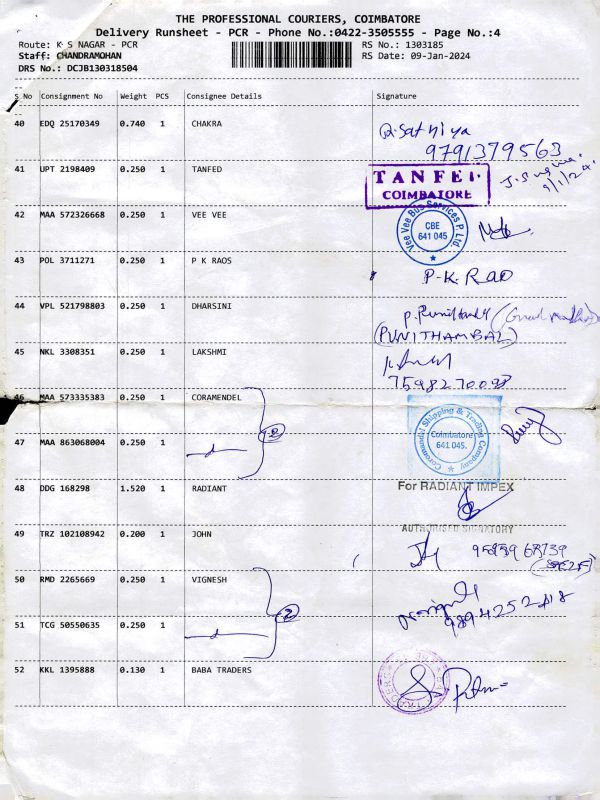 THE PROFESSIONAL COURIERS, COIMBATORE
Delivery Runsheet - PCR - Phone No.:0422-3505555 - Page No.:4
Route: K S NAGAR - PCR RS No.: 1303185
Staff: CHANDRAMOHAN RS Date: 09-Jan-2024
DRS No.: DCJB130318504
S No Consignment No Weight PCS Consignee Details Signature
40 EDQ 25170349 0.740 1 CHAKRA
R. Sathiya
9791379563
41 UPT 2198409 0.250 1 TANFED
TANFED
COIMBATORE
9/1/24
42 MAA 572326668 0.250 1 VEE VEE
Vee Vee Bus Services P. Ltd.
CBE
641 045
43 POL 3711271 0.250 1 P K RAOS
P-K. RAO
44 VPL 521798803 0.250 1 DHARSINI
(PUNITHAMBAL)
45 NKL 3308351 0.250 1 LAKSHMI
46 MAA 573335383 0.250 1 CORAMENDEL
Coromandal Shipping & Trading Company
Coimbatore
641 045.
47 MAA 863068004 0.250 1
2
48 DDG 168298 1.520 1 RADIANT
For RADIANT IMPEX
AUTHORISED SIGNATORY
49 TRZ 102108942 0.200 1 JOHN
50 RMD 2265669 0.250 1 VIGNESH
51 TCG 50550635 0.250 1
2
52 KKL 1395888 0.130 1 BABA TRADERS